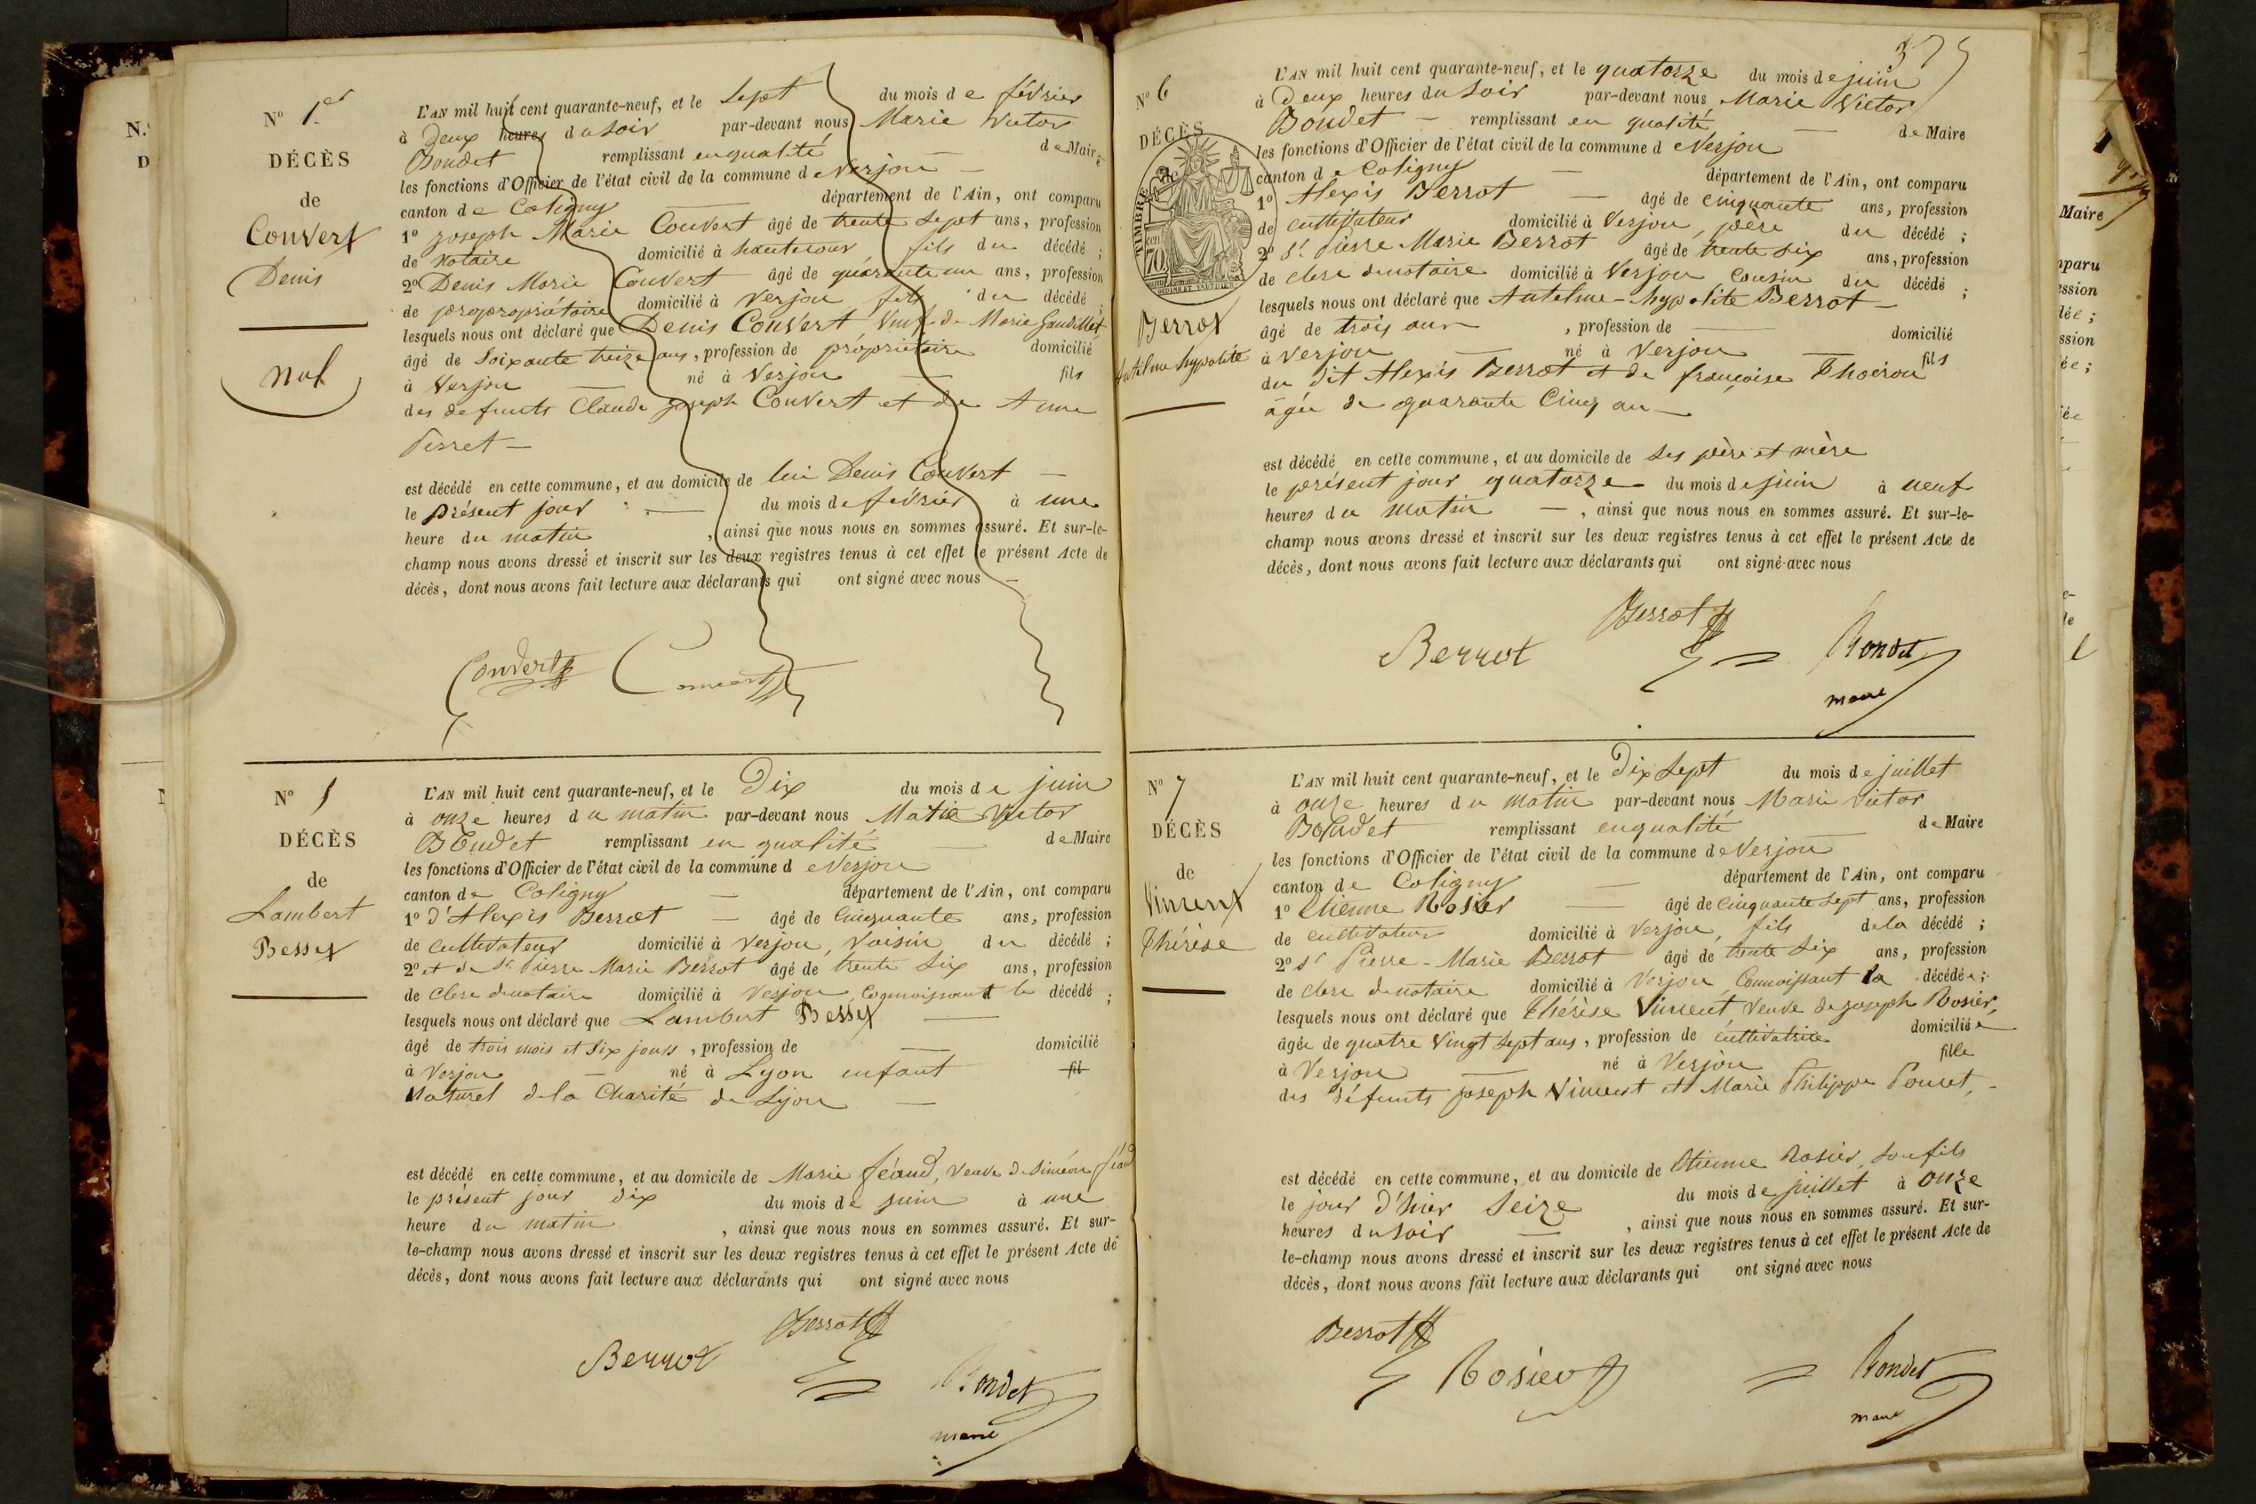 N° 1er
DÉCÈS
de
Convert
Denis
nul
L'AN mil huit cent quarante-neuf, et le sept du mois de février
à deux heures du soir par-devant nous Marie Victor
Bondet remplissant en qualité de Maire
les fonctions d'Officier de l'état civil de la commune de Verjon
canton de Coligny département de l'Ain, ont comparu
1° joseph Marie Convert âgé de trente sept ans, profession
de notaire domicilié à hautecour fils du décédé ;
2° Denis Marie Convert âgé de quarante un ans, profession
de propropriétaire domicilié à Verjon fils du décédé ;
lesquels nous ont déclaré que Denis Convert veuf de Marie
âgé de soixante treize ans, profession de propriétaire domicilié
à Verjon né à Verjon fils
des defunts Claude joseph Convert et de Anne
Perret
est décédé en cette commune, et au domicile de lui Denis Convert
le présent jour du mois de février à une
heure du matin, ainsi que nous nous en sommes assuré. Et sur-le-
champ nous avons dressé et inscrit sur les deux registres tenus à cet effet le présent Acte de
décès, dont nous avons fait lecture aux déclarants qui ont signé avec nous
Convert Convert
N° 5
DÉCÈS
de
Lambert
Bessy
L'AN mil huit cent quarante-neuf, et le Dix du mois de juin
à onze heures du matin par-devant nous Marie Victor
Bondet remplissant en qualité de Maire
les fonctions d'Officier de l'état civil de la commune de Verjon
canton de Coligny département de l'Ain, ont comparu
1° d'Alexis Berrot âgé de cinquante ans, profession
de cultivateur domicilié à Verjon, voisin du décédé ;
2° et de Sr Pierre Marie Berrot âgé de trente six ans, profession
de clerc de notaire domicilié à Verjon connoissant le décédé ;
lesquels nous ont déclaré que Lambert
âgé de trois mois et six jours, profession de domicilié
à Verjon né à Lyon enfant fil
Naturel de la Charité de Lyon
est décédé en cette commune, et au domicile de Marie féaud, veuve de Siméon féaud
le présent jour dix du mois de juin à une
heure du matin, ainsi que nous nous en sommes assuré. Et sur-
le-champ nous avons dressé et inscrit sur les deux registres tenus à cet effet le présent Acte de
décès, dont nous avons fait lecture aux déclarants qui ont signé avec nous
Berrot
Berrot
Bondet
maire
375
N° 6
DÉCÈS
de
TIMBRE
70
Berrot
Antelme hypolite
L'AN mil huit cent quarante-neuf, et le quatorze du mois de juin
à Deux heures du soir par-devant nous Marie Victor
Bondet remplissant en qualité de Maire
les fonctions d'Officier de l'état civil de la commune de Verjon
canton de Coligny département de l'Ain, ont comparu
1° Alexis Berrot âgé de cinquante ans, profession
de cultivateur domicilié à Verjon, père du décédé ;
2° Sr Pierre Marie Berrot âgé de trente six ans, profession
de clerc de notaire domicilié à Verjon cousin du décédé ;
lesquels nous ont déclaré que Antelme-hypolite Berrot
âgé de trois ans, profession de domicilié
à Verjon né à Verjon fils
du dit Alexis Berrot et de françoise
âgée de quarante cinq an
est décédé en cette commune, et au domicile de ses père et mère
le présent jour quatorze du mois de juin à neuf
heures du matin, ainsi que nous nous en sommes assuré. Et sur-le-
champ nous avons dressé et inscrit sur les deux registres tenus à cet effet le présent Acte de
décès, dont nous avons fait lecture aux déclarants qui ont signé avec nous
Berrot
Berrot
Bondet
maire
N° 7
DÉCÈS
de
Vincent
Thérèse
L'AN mil huit cent quarante-neuf, et le Dix sept du mois de juillet
à onze heures du matin par-devant nous Marie Victor
Bondet remplissant en qualité de Maire
les fonctions d'Officier de l'état civil de la commune de Verjon
canton de Coligny département de l'Ain, ont comparu
1° Etienne Rosier âgé de cinquante sept ans, profession
de cultivateur domicilié à Verjon, fils de la décédé ;
2° Sr Pierre-Marie Berrot âgé de trente six ans, profession
de clerc de notaire domicilié à Verjon, Connoissant la décédée ;
lesquels nous ont déclaré que Thérèse Vincent veuve de joseph Rosier,
âgée de quatre vingt sept ans, profession de cultivatrice domiciliée
à Verjon né à Verjon fille
des défunts joseph Vincent et Marie Philippe Poncet,
est décédé en cette commune, et au domicile de Etienne Rosier, son fils
le jour d'hier seize du mois de juillet à onze
heures du soir, ainsi que nous nous en sommes assuré. Et sur-
le-champ nous avons dressé et inscrit sur les deux registres tenus à cet effet le présent Acte de
décès, dont nous avons fait lecture aux déclarants qui ont signé avec nous
Berrot
Rosier
Bondet
maire